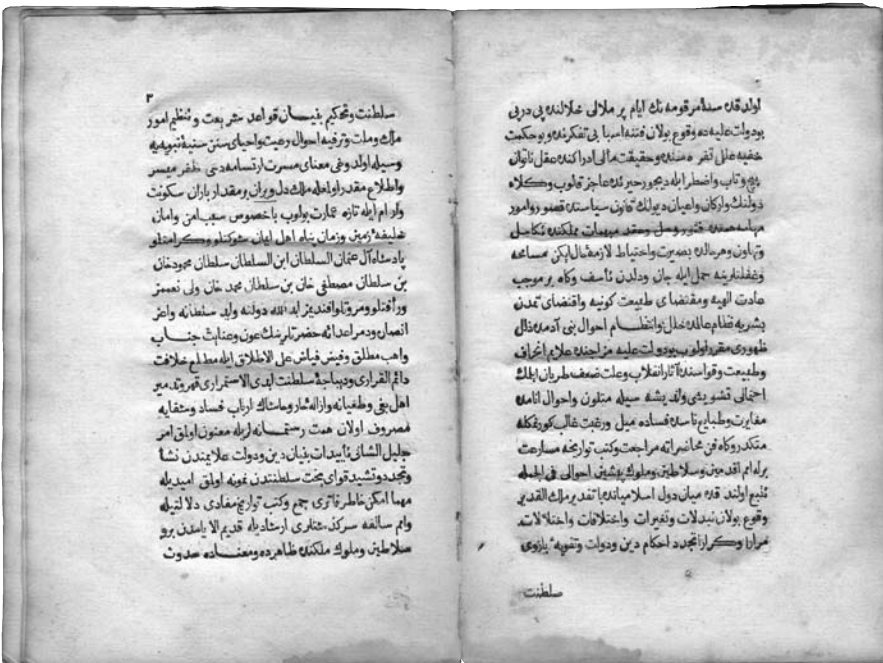 اولدقده سنۀ مرقومه نك ايام پر ملالی خلالنده پی در پی
بو دولت عليه ده وقوع بولان فتنه اسبابی تفكرنده و بو حكمت
خفيه علل تفرقه سنده و حقيقت مآلی ادراكنده عقل ناتوان
پيچ و تاب و اضطرابله ديجور حيرتده عاجز قولوب وكلاء
دولتك و اركان و اعيان ديوانك قانون سياستده قصور و امور
مهامه سنده فتور و حل و عقد مبهمات مملكتده تكاسل
وتهاون و هر حالده بصيرت و احتياط لازمه شال ايكن مسامحه
وغفلتلرينه حمل ايله جان و دلدن تأسف و كاه بر موجب
عادت الهيه و مقتضای طبيعت كونيه و اقتضای تمدن
بشريه نظام عالمده خلل و انتظام احوال بنی آدمده ذلل
ظهوری مقرر اولوب بو دولت عليه مزاجنده علايم انحراف
وطبيعت و قواسنده آثار انقلاب و علت ضعف طريان ايلمك
احتمالی تشويشی ولدی پشه سيله متلون و احوال انامده
مغايرت و طبايع ناسده فساده ميل و رغبت غالب كورنمكله
متكدر و كاه فن محاضراته مراجعت و كتب تواريخه مسارعت
برله امم اقدمين و سلاطين و ملوك پيشين احوالی فی الجمله
تتبع اولندقده ميان دول اسلاميانده با تقدير ملك القدير
وقوع بولان تبدلات و تغيرات و اختلافات و اختلالات
مرارا و كرارا تجدد احكام دين و دولت و تقويۀ بازوی
سلطنت
٣
سلطنت و تحكيم بنيان قواعد شريعت و تنظيم امور
ملك و ملت و ترفيه احوال رعيت و احيای سنن سنيۀ نبويه يه
وسيله اولدوغی معنای مسرت ارتسامه دخی ظفر ميسر
واطلاع مقدر اولمغله ملك دل ويران بر مقدار باران سكونت
وارام ايله تازه عمارت بولوب باخصوص سبب امن و امان
خليفۀ زمين و زمان پناه اهل ايمان شوكتلو و كرامتلو
پادشاه آل عثمان السلطان ابن السلطان سلطان محمود خان
بن سلطان مصطفی خان بن سلطان محمد خان ولی نعممز
ورأفتلو و مروتلو افنديمز ابد الله دولته و ايد سلطانه واعز
انصاره و دمر اعدائه حضرتلرينك عون و عنايت جناب
واهب مطلق و فيض فياض علی الاطلاق ايله مطلع خلافت
دائم القراری و ديباجۀ سلطنت ابدی الاستمراری قهر و تدمير
اهل بغی و طغيانه و ازالۀ شار و خاشاك ارباب فساد و شقايه
مصروف اولان همت رستمانه لريله معنون اولمق امر
جليل الشانی تأييدات بنيان دين و دولت علايمندن نشأ
وتجدد و تشييد قوای بخت سلطنتدن نمونه اولمق اميديله
مهما امكن خاطر فاتری جمع و كتب تواريخ مفادی دلالتيله
وامم سالفه سركذشتلری ارشاديله قديم الايامدن برو
سلاطين و ملوك ملكنده ظاهرده و معناده حدوث